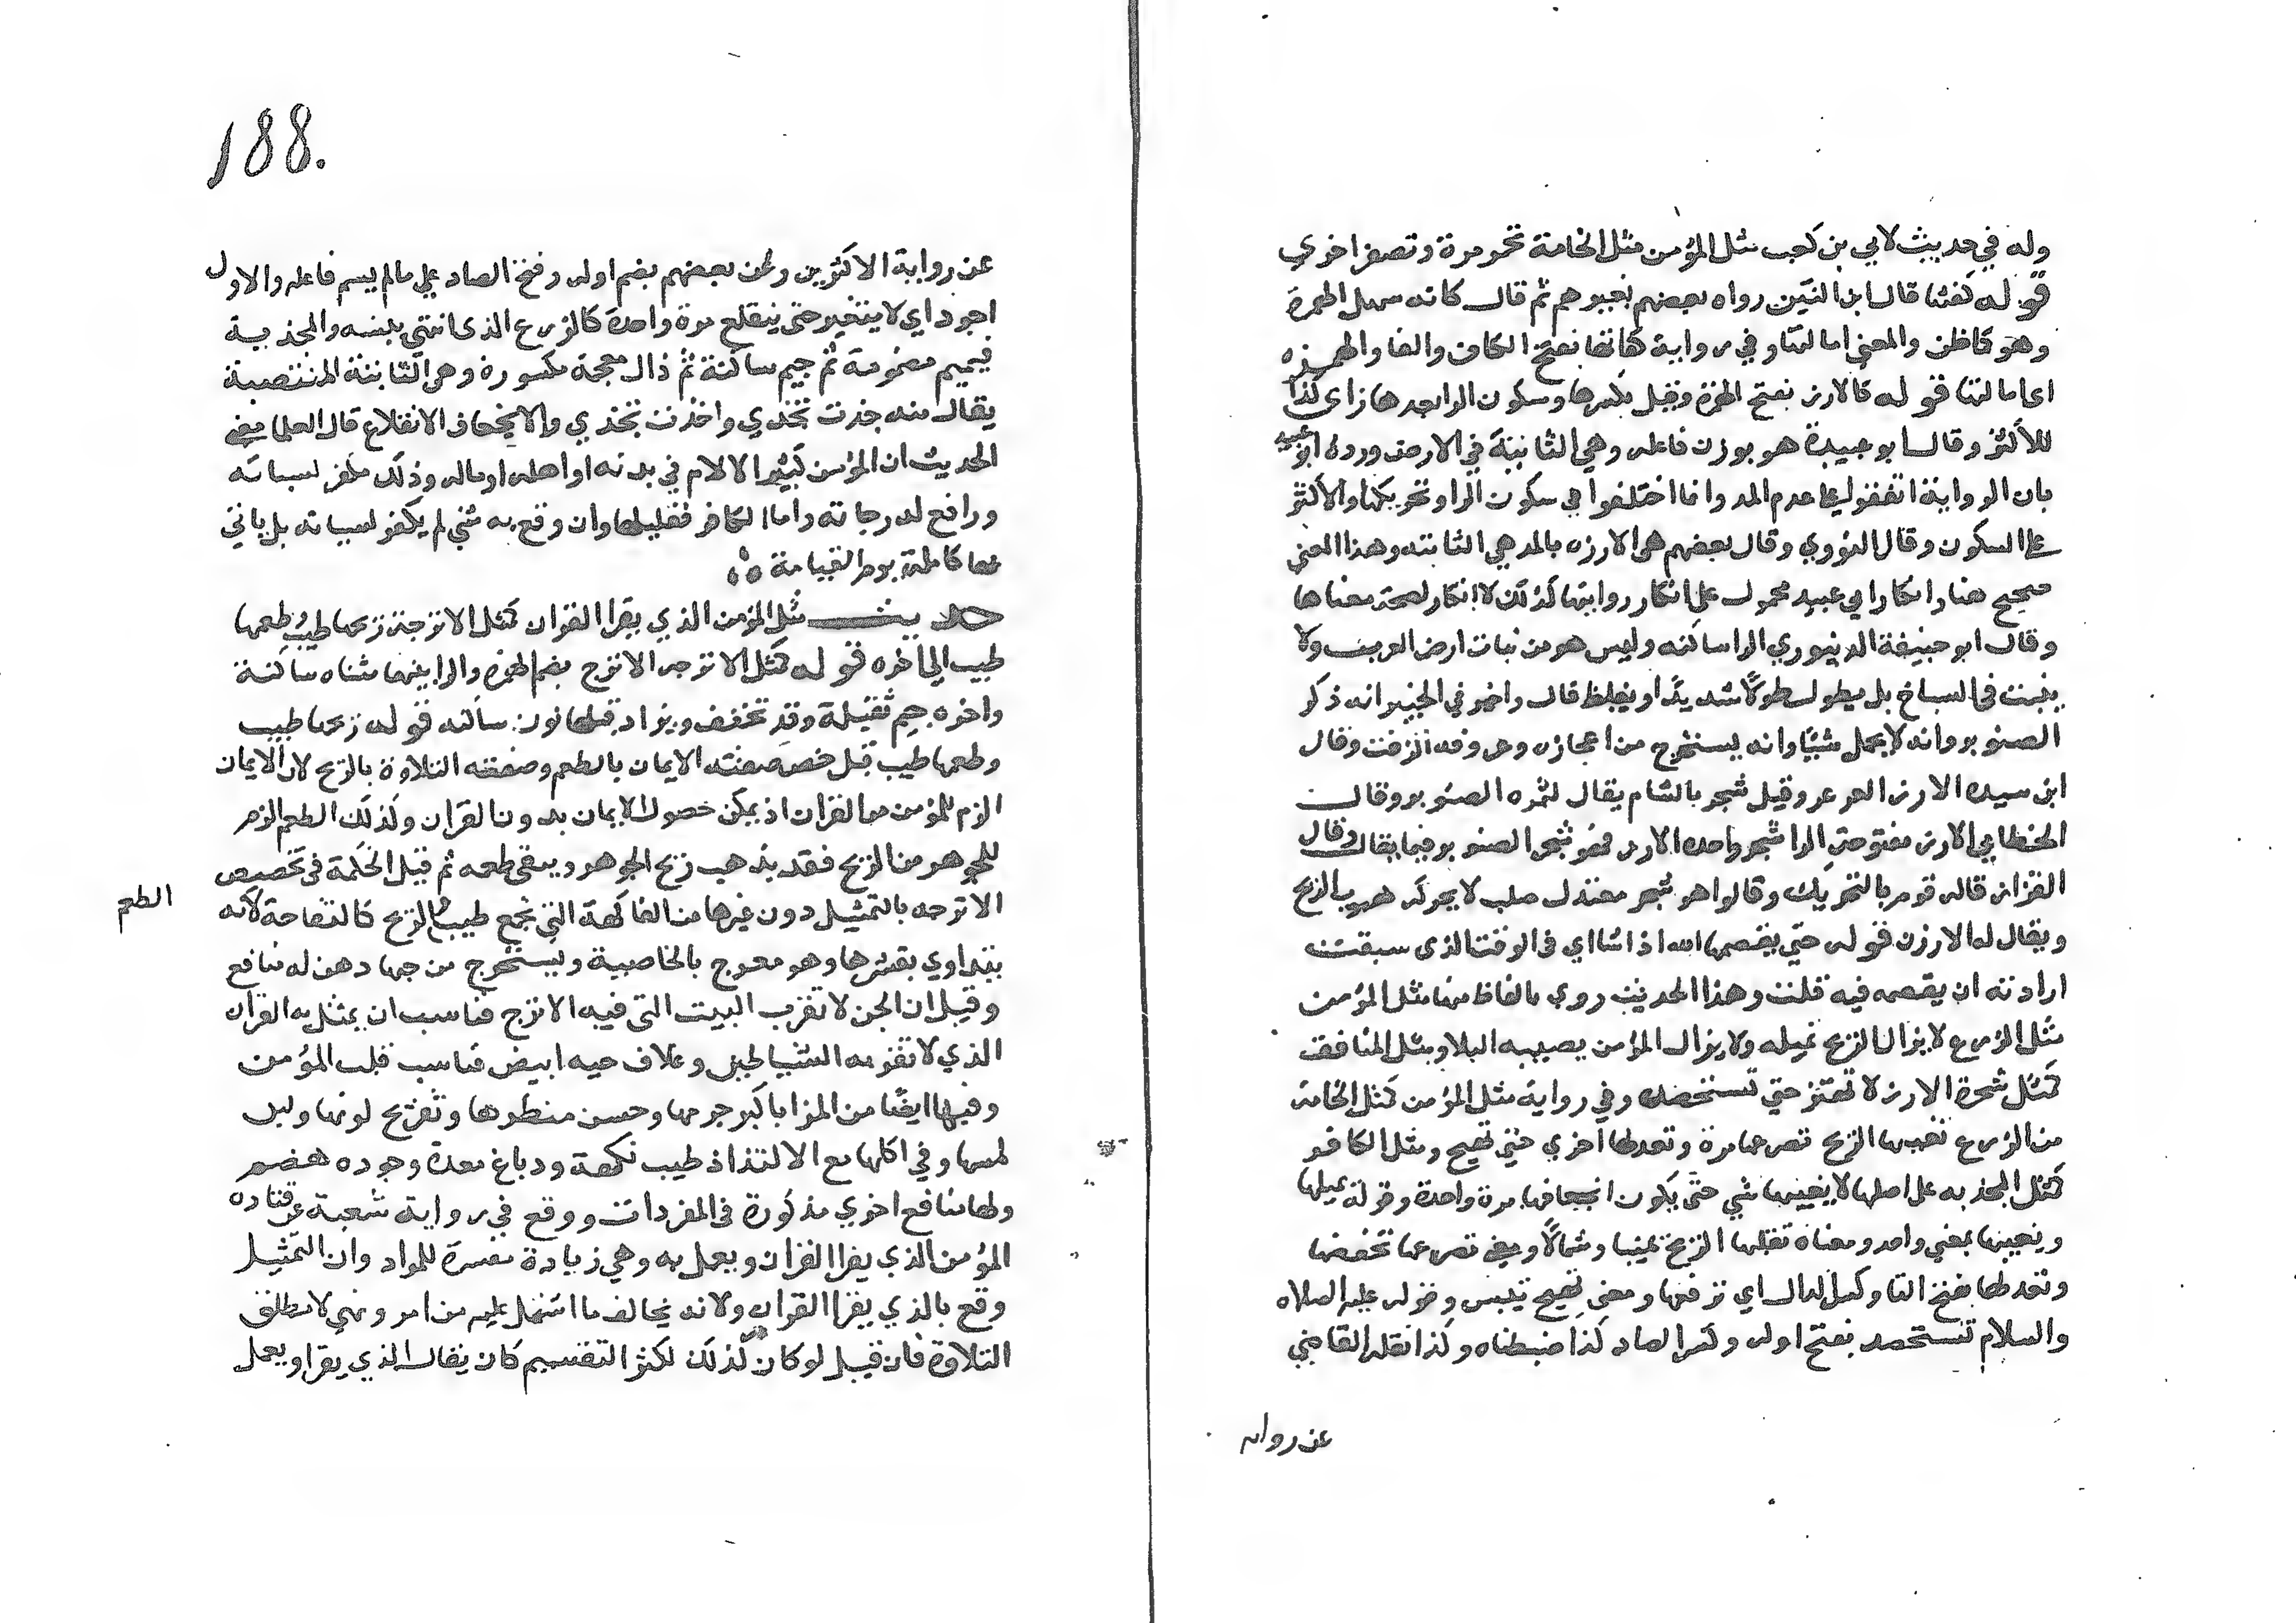 وله في حديث لابي بن كعب مثل المؤمن مثل الخامة تحمر مرة وتصفر اخري
قوله كفتها قال ابن التين رواه بعضهم بغير همز ثم قال كانه سهل الهمزة
وهو كما ظن والمعني امالتها وفي رواية كفاتها بفتح الكاف والفا والهمزه
اي امالتها قوله كالارز بفتح الهمزة وقيل بكسرها وسكون الرا بعدها زاي كذا
للاكثر وقال ابو عبيدة هو بوزن فاعله وهي الثابتة في الارض ورده ابو عبيد
بان الرواية اتفقوا علي عدم المد وانما اختلفوا في سكون الرا وتحريكها والاكثر
علي السكون وقال النووي وقال بعضهم هي الارزه بالمد هي الثابته وهذا المعني
صحيح هنا وانكار ابي عبيد محمول علي انكار روايتها لذلك لا انكار لصحة معناها
وقال ابو حنيفة الدينوري الرا ساكنه وليس هو من نبات ارض العرب ولا
ينبت في السباخ بل يطول طولا شديدا ويغلظ قال واخبرني الخبير انه ذكر
الصنوبر وانه لا يحمل شيئا وانه يستخرج من اعجازه وعروقه الزفت وقال
ابن سيده الارز العرعر وقيل شجر بالشام يقال لثمره الصنوبر وقال
الخطابي الارز مفتوحة الرا شجر واحده الارز فهو شجر الصنوبر وفيما يقال وقال
القزاز قاله قوم بالتحريك وقالوا هو شجر معتدل صلب لا يحركه هبوب الريح
ويقال له الارزن قوله حتي يقصمها الله اذا شا اي في الوقت الذي سبقت
ارادته ان يقصمه فيه قلت وهذا الحديث روي بالفاظ منها مثل المؤمن
مثل الزرع لا يزال الريح تميله ولا يزال المؤمن يصيبه البلا ومثل المنافق
كمثل شجرة الارز لا تهتز حتي تستحصد وفي رواية مثل المؤمن كمثل الخامة
من الزرع تفيها الريح تصرعها مرة وتعدلها اخري حتي تهيج ومثل الكافر
كمثل المجذيه علي اصلها لا يفيئها شي حتي يكون انجعافها مرة واحدة وقوله يميلها
ويفيئها بمعني واحد ومعناه تقلبها الريح يمينا وشمالا ومعني تصرعها تخفضها
وتعدلها بفتح التا وكسر الدال اي ترفعها ومعني تهيج تيبس وقوله عليه الصلاه
والسلام تستحصد بفتح اوله وكسر الصاد كذا ضبطناه وكذا نقله القاضي
عن روايه
188.
عن رواية الاكثرين وعن بعضهم بضم اوله وفتح الصاد علي مالم يسم فاعله والاول
اجود اي لا يتغير حتي ينقلع مرة واحدة كالزرع الذي انتهي يبسه والمجذية
فبميم مضمومة ثم جيم ساكنة ثم ذال معجمة مكسورة وهي الثابتة المنتصبة
يقال منه جذت تجذي واجذت تجذي والانجعاف الانقلاع قال العلما معني
الحديث ان المؤمن كثير الالام في بدنه او اهله او ماله وذلك مكفر لسياته
ورافع لدرجاته واما الكافر فقليلها وان وقع به شي لم يكفر لسياته بل ياتي
بها كاملة يوم القيامة
حديث مثل المؤمن الذي يقرا القران كمثل الاترجة ريحها طيب وطعمها
طيب الي اخره قوله كمثل الاترجه الاترج بضم الهمزه والرا بينهما مثناه ساكنة
واخره جيم ثقيلة وقد تخفف ويزاد قبلها نون ساكنه قوله ريحها طيب
وطعمها طيب قيل خص صفة الايمان بالطعم وصفة التلاوة بالريح لان الايمان
الزم للمؤمن من القران اذ يمكن حصول الايمان بدون القران وكذلك الطعم الزم
للجوهر من الريح فقد يذهب ريح الجوهر ويبقي طعمه ثم قيل الحكمة في تخصيص
الاترجه بالتمثيل دون غيرها من الفاكهة التي تجمع طيب الريح كالتفاحة لانه
الطعم
يتداوي بقشرها وهو مفرح بالخاصية ويستخرج من حبها دهن له منافع
وقيل ان الجن لا تقرب البيت التي فيه الاترج فناسب ان يمثل به القران
الذي لا تقربه الشياطين وغلاف حبه ابيض فناسب قلب المؤمن
وفيها ايضا من المزايا كبر جرمها وحسن منظرها وتفريح لونها ولين
لمسها وفي اكلها مع الالتذاذ طيب نكهة ودباغ معدة وجوده هضم
ولها منافع اخري مذكورة في المفردات ووقع في رواية شعبة عن قتاده
المؤمن الذي يقرا القران ويعمل به وهي زيادة مفسرة للمراد وان التمثيل
وقع بالذي يقرا القران ولانه يخالف ما اشتمل عليه من امر ونهي لا مطلق
التلاوة فان قيل لو كان كذلك لكثر التقسيم كان يقال الذي يقرا ويعمل